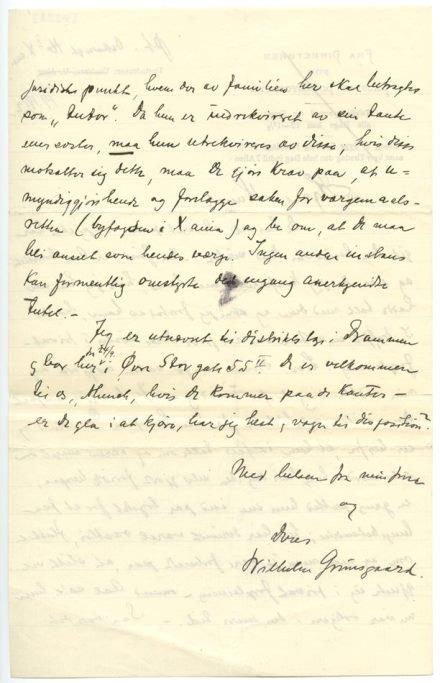 juridisk punkt, hvem der av familien her skal betragtes
som „Tutor". Da hun er indrekvireret av sin Tante
eller søster, maa hun utrekvireres av disse, hvis disse
motsætter sig dette, maa De gjøre Krav paa, at u-
myndiggjøre hende og forelægge saken for værgemaals-
retten (byfogden i X ania) og be om, at De maa
bli ansett som hendes værge. Ingen anden instans
kan formentlig omstyrte den engang anerkjendte
Tutel. -
Jeg er utnævnt til distriktslæge i Drammen
og bor her i Øvre Storgate 55 II. De er velkommen
til os, Munch, hvis De kommer paa de Kanter -
er De gla i at kjøre, har jeg hest, vogn til disposition.
Med hilsen fra min frue
og
Deres
Wilhelm Grimsgaard.